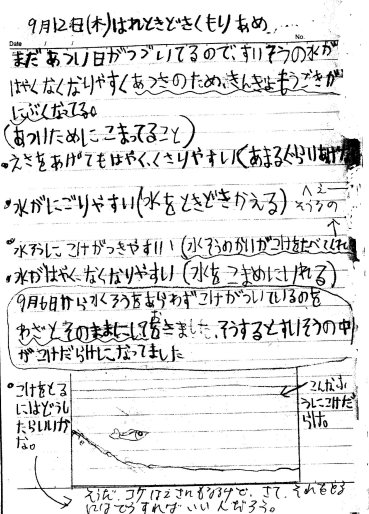 9月12日(木)はれときどきくもり あめ
Date / / No.
まだあつい日がつづいてるので、すいそうの水が
はやくなくなりやすくあつさのため、きんぎょもうごきが
にぶくなってる。
(あついためにこまってること)
•えさをあげてもはやく、くさりやすい(あまるぐらい
•水がにごりやすい(水をときどきかえる)
•水そうにこけがつきやすいい(水そうのかいがこけをたべてくれ
•水がはやくなくなりやすい(水をこまめにいれる)
9月6日から水そうをあらわずこけがついているのを
わざとそのままにしてをきました、そうするとすいそうの中
お
がこけだらけになってました
•こけをとる
にはどうし
たらいいか
な。
こんなふ
うにこけだ
らけ。
そうだ、コケは さて、それをとる
にはどうすればいいんだろう。